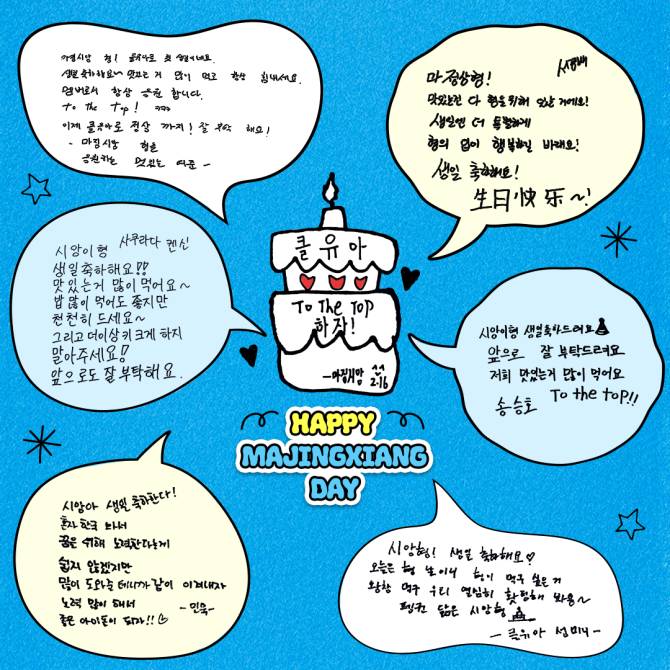 마징시앙 형! 클유아로 첫 생일이네요.
생일 축하해요~ 맛있는 거 많이 먹고 항상 힘내세요.
멤버로서 항상 응원 합니다.
To the Top!
이제 클유아로 정상 까지! 잘 부탁 해요!
- 마징시앙 형을
응원하는 멋있는
서정배
마징상형!
맛있는건 다 형을위해 있는 거에요!
생일엔 더 특별하게
형의 덥이 행복하길 바래요!
생일 축하해요!
生日快乐~!
시앙이형 사쿠라다 켄신
생일축하해요!!
맛있는거 많이 먹어요~
밥 많이 먹어도 좋지만
천천히 드세요~
그리고 더이상 키 크게 하지
말아주세요!
앞으로도 잘 부탁해요.
클유아
To The Top
하자!
-마징시앙
2.16
HAPPY
MAJINGXIANG
DAY
시앙이형 생일축하드려요
앞으로 잘 부탁드려요
저희 맛있는거 많이 먹어요
송승호 To the top!!
시앙아 생일 축하한다!
혼자 한국 와서
꿈을 위해 노력한다는게
쉽지 않겠지만
많이 도와줄테니까 같이 이겨내자
노력 많이 해서
좋은 아이돌이 되자!! ♡
-민욱-
시앙형! 생일 축하해요♡
오늘은 형 날이니 형이 먹구 싶은거
왕창 먹구 우리 열심히 핫팅해 봐용~
펭귄 닮은 시앙형
- 클유아 성민이 -